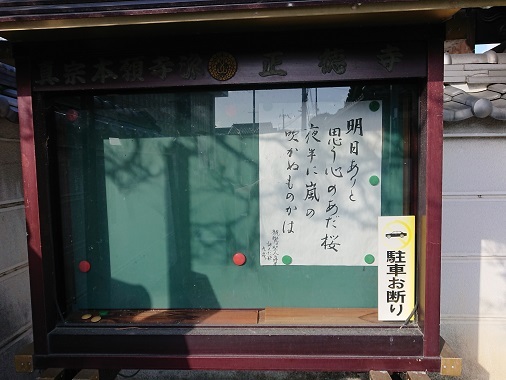 真宗本願寺派 正徳寺
明日ありと
思う心のあだ桜
夜半に嵐の
吹かぬものかは
駐車お断り